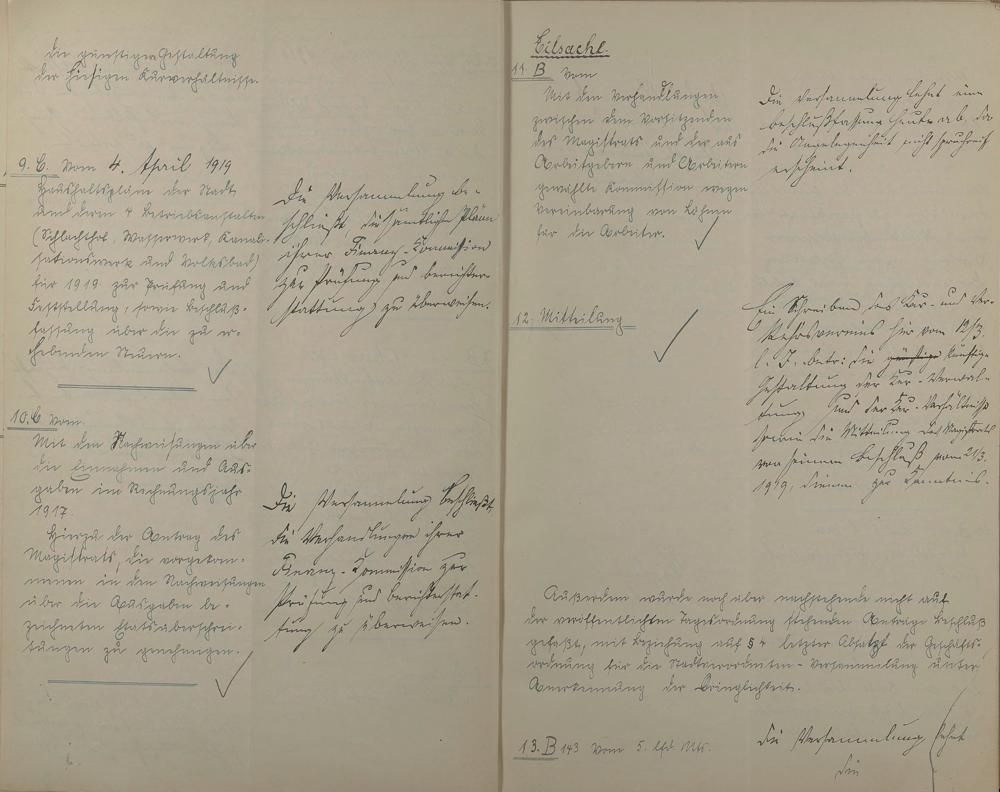 die günstigen Gestaltung
der hiesigen Kurverhältnisse.
9. C. vom 4. April 1919
Haushaltspläne der Stadt
und deren 4 Betriebsanstalten
(Schlachthof, Wasserwerk, Kanali-
sationswerk und Volksbad)
für 1919 zur Prüfung und
Feststellung, sowie Beschluß-
fassung über die zu er-
hebenden Steuern.
Die Versammlung be-
schließt, die sämtlichen Pläne
ihrer Finanz-Kommission
zur Prüfung und Berichter-
stattung zu überweisen.
10. C vom
Mit den Nachweisungen über
die Einnahmen und Aus-
gaben im Rechnungsjahr
1917.
Hierzu der Antrag des
Magistrats, die vorgekom-
menen in den Nachweisungen
über die Ausgaben be-
zeichneten Etatsüberschrei-
tungen zu genehmigen.
Die Versammlung beschließt,
die Verhandlungen ihrer
Finanz-Kommission zur
Prüfung und Berichterstat-
tung zu überweisen.
Eilsache.
11. B vom
Mit den Verhandlungen
zwischen dem Vorsitzenden
des Magistrats und der aus
Arbeitgebern und Arbeitern
gewählte Kommission wegen
Vereinbarung von Löhnen
für die Arbeiter.
Die Versammlung lehnt eine
Beschlußfassung heute ab, da
die Angelegenheit nicht spruchreif
erscheint.
12. Mitteilung
Ein Schreiben des Kur- und Ver-
kehrsvereins hier vom 12/3.
l. J. betr: die günstige künftige
Gestaltung der Kur-Verwal-
tung und der Kur-Verhältnisse
sowie die Mitteilung des Magistrats
von seinem Beschluß vom 21/3.
1919, dienen zur Kenntnis.
Außerdem wurde noch über nachstehende nicht auf
der veröffentlichten Tagesordnung stehenden Anträge Beschluß
gefaßt, mit Beziehung auf § 4 letzter Absatz der Geschäfts-
ordnung für die Stadtverordneten-Versammlung unter
Anerkennung der Dringlichkeit.
13. B 143 vom 5. lfd. Mts.
Die Versammlung lehnt
die